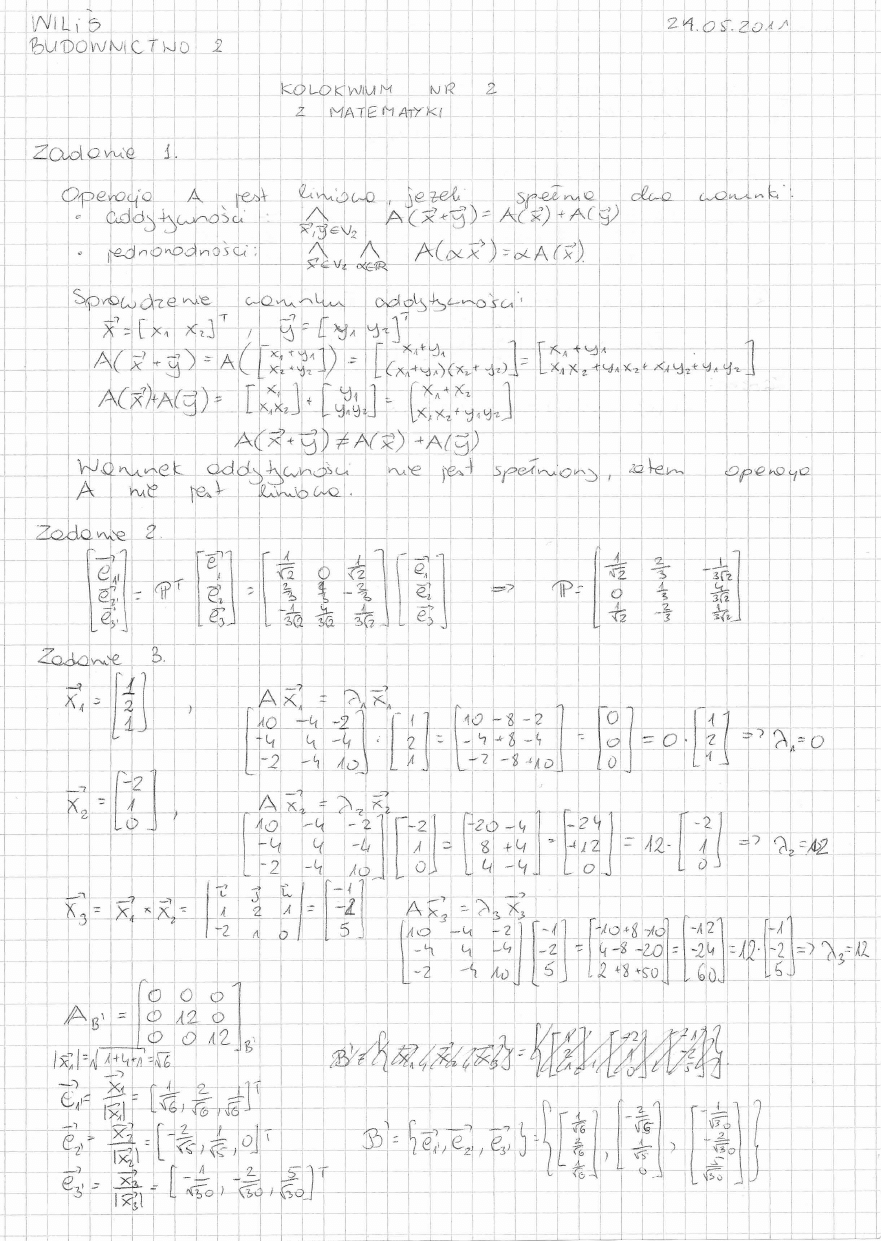 WILiŚ 24.05.2011
BUDOWNICTWO 2
KOLOKWIUM NR 2
Z MATEMATYKI
Zadanie 1.
Operacja A jest liniowa, jeżeli spełnia dwa warunki:
• addytywności: ⋀_{x⃗,y⃗∈V₂} A(x⃗+y⃗) = A(x⃗) + A(y⃗)
• jednorodności: ⋀_{x⃗∈V₂} ⋀_{α∈ℝ} A(αx⃗) = αA(x⃗)
Sprawdzenie warunku addytywności:
x⃗ = [x₁ x₂]ᵀ, y⃗ = [y₁ y₂]ᵀ
A(x⃗+y⃗) = A([x₁+y₁; x₂+y₂]) = [x₁+y₁; (x₁+y₁)(x₂+y₂)] = [x₁+y₁; x₁x₂+y₁x₂+x₁y₂+y₁y₂]
A(x⃗)+A(y⃗) = [x₁; x₁x₂] + [y₁; y₁y₂] = [x₁+x₂; x₁x₂+y₁y₂]
A(x⃗+y⃗) ≠ A(x⃗) + A(y⃗)
Warunek addytywności nie jest spełniony, zatem operacja
A nie jest liniowa.
Zadanie 2
[e⃗₁'; e⃗₂'; e⃗₃'] = ℙᵀ [e⃗₁; e⃗₂; e⃗₃] = [1/√2 0 1/√2; 2/3 1/3 -2/3; -1/3√2 4/3√2 1/3√2] [e⃗₁; e⃗₂; e⃗₃] => ℙ = [1/√2 2/3 -1/3√2; 0 1/3 4/3√2; 1/√2 -2/3 1/3√2]
Zadanie 3.
x⃗₁ = [1; 2; 1], A x⃗₁ = λ₁ x⃗₁
[10 -4 -2; -4 4 -4; -2 -4 10] · [1; 2; 1] = [10-8-2; -4+8-4; -2-8+10] = [0; 0; 0] = 0 · [1; 2; 1] => λ₁=0
x⃗₂ = [-2; 1; 0], A x⃗₂ = λ₂ x⃗₂
[10 -4 -2; -4 4 -4; -2 -4 10] [-2; 1; 0] = [-20-4; 8+4; 4-4] = [-24; +12; 0] = 12 · [-2; 1; 0] => λ₂=12
x⃗₃ = x⃗₁ × x⃗₂ = |i⃗ j⃗ k⃗; 1 2 1; -2 1 0| = [-1; -2; 5] A x⃗₃ = λ₃ x⃗₃
[10 -4 -2; -4 4 -4; -2 -4 10] [-1; -2; 5] = [-10+8-10; 4-8-20; 2+8+50] = [-12; -24; 60] = 12 · [-1; -2; 5] => λ₃=12
A_B' = [0 0 0; 0 12 0; 0 0 12]_B'
|x⃗₁| = √(1+4+1) = √6
e⃗₁' = x⃗₁/|x⃗₁| = [1/√6, 2/√6, 1/√6]ᵀ
e⃗₂' = x⃗₂/|x⃗₂| = [-2/√5, 1/√5, 0]ᵀ B' = {e⃗₁', e⃗₂', e⃗₃'} = {[1/√6; 2/√6; 1/√6], [-2/√5; 1/√5; 0], [-1/√30; -2/√30; 5/√30]}
e⃗₃' = x⃗₃/|x⃗₃| = [-1/√30, -2/√30, 5/√30]ᵀ